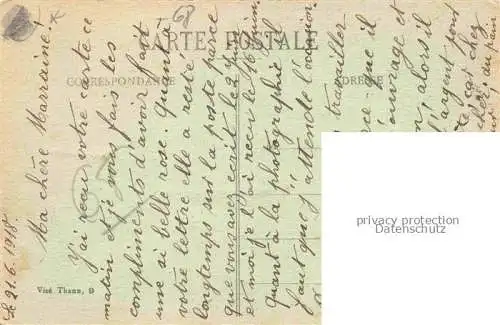 Le 21.6.1918.
Ma chère Marraine!
J'ai reçu votre carte ce
matin et je vous fais les
compliments d'avoir fait
une si belle rose. Quant à
votre lettre elle a resté
longtemps sur la poste parce
que vous avez écrit le 2 juin
et moi je l'ai reçu le 16 juin
Quant à la photographie il
faut que j'attende l'occasion
travailler
me il
ouvrage et
alors il
d'argent pour
chez
du pain
CARTE POSTALE
CORRESPONDANCE
ADRESSE
68
Visé Thann, 9
privacy protection
www.oldthing.de